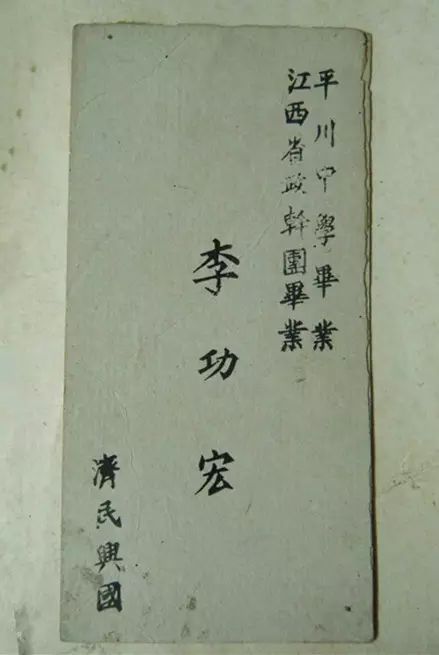 平川中學畢業
江西省政幹團畢業
李功宏
濟民興國